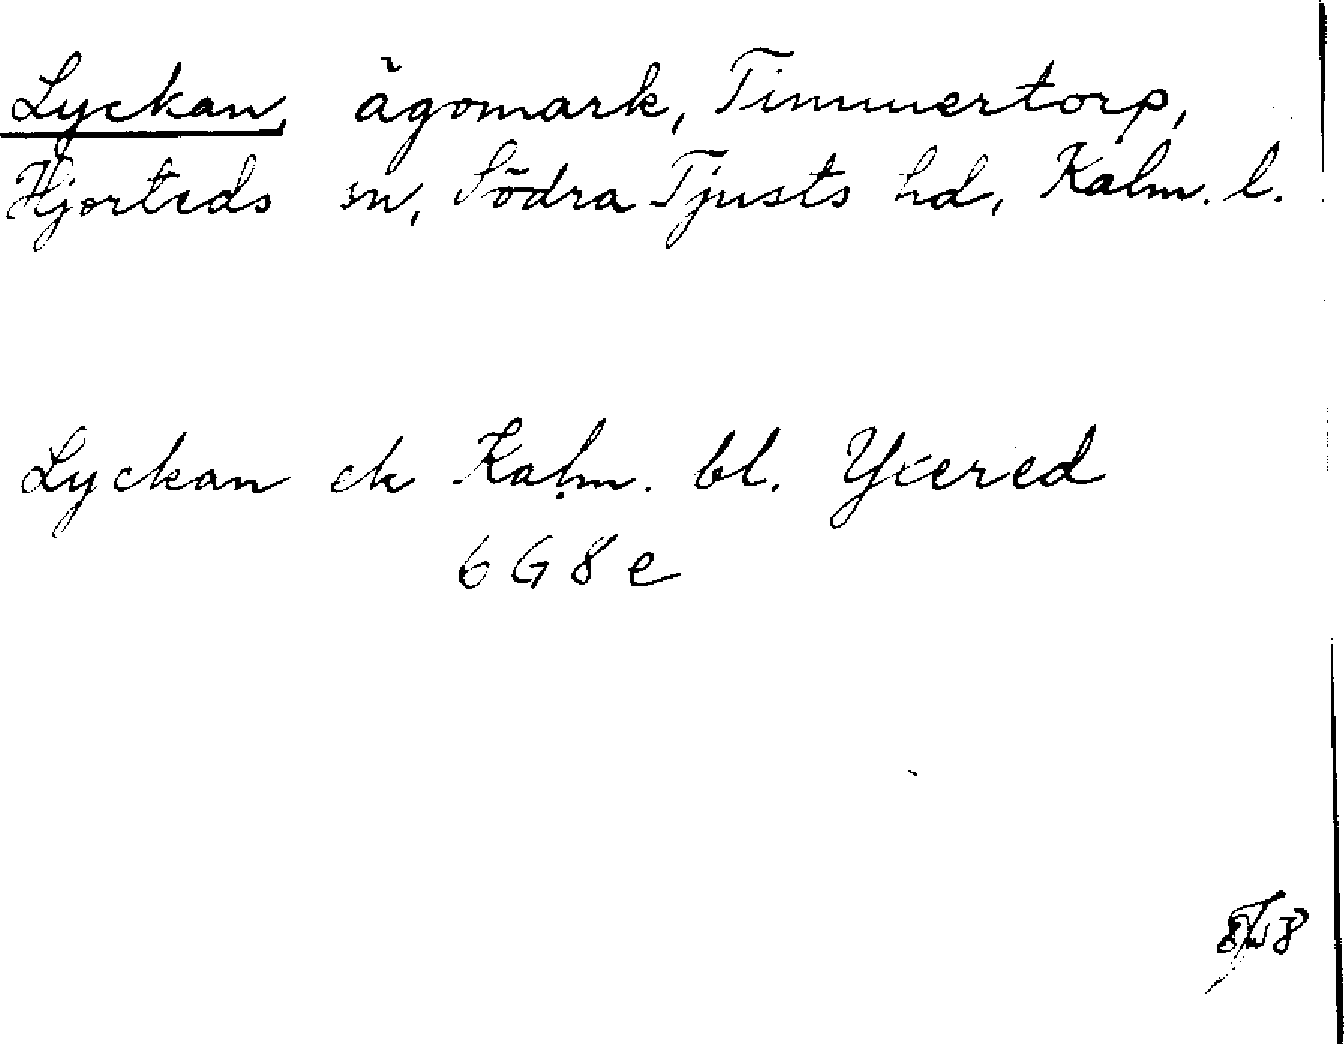 Lyckan, ägomark, Timmertorp,
Hjorteds sn, Södra Tjusts hd, Kalm. l.
Lyckan ek Kalm. bl. Yxered
6 G 8 e